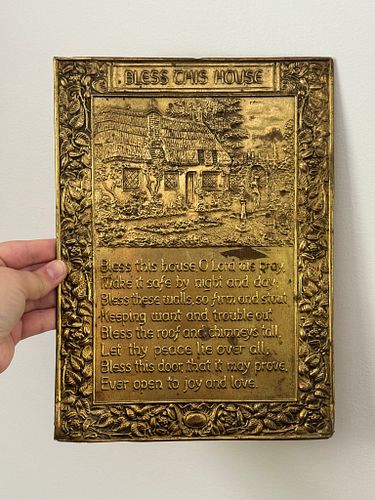 BLESS THIS HOUSE
Bless this house, O Lord we pray,
Make it safe by night and day.
Bless these walls, so firm and stout
Keeping want and trouble out.
Bless the roof and chimneys tall,
Let thy peace lie over all,
Bless this door, that it may prove,
Ever open to joy and love.